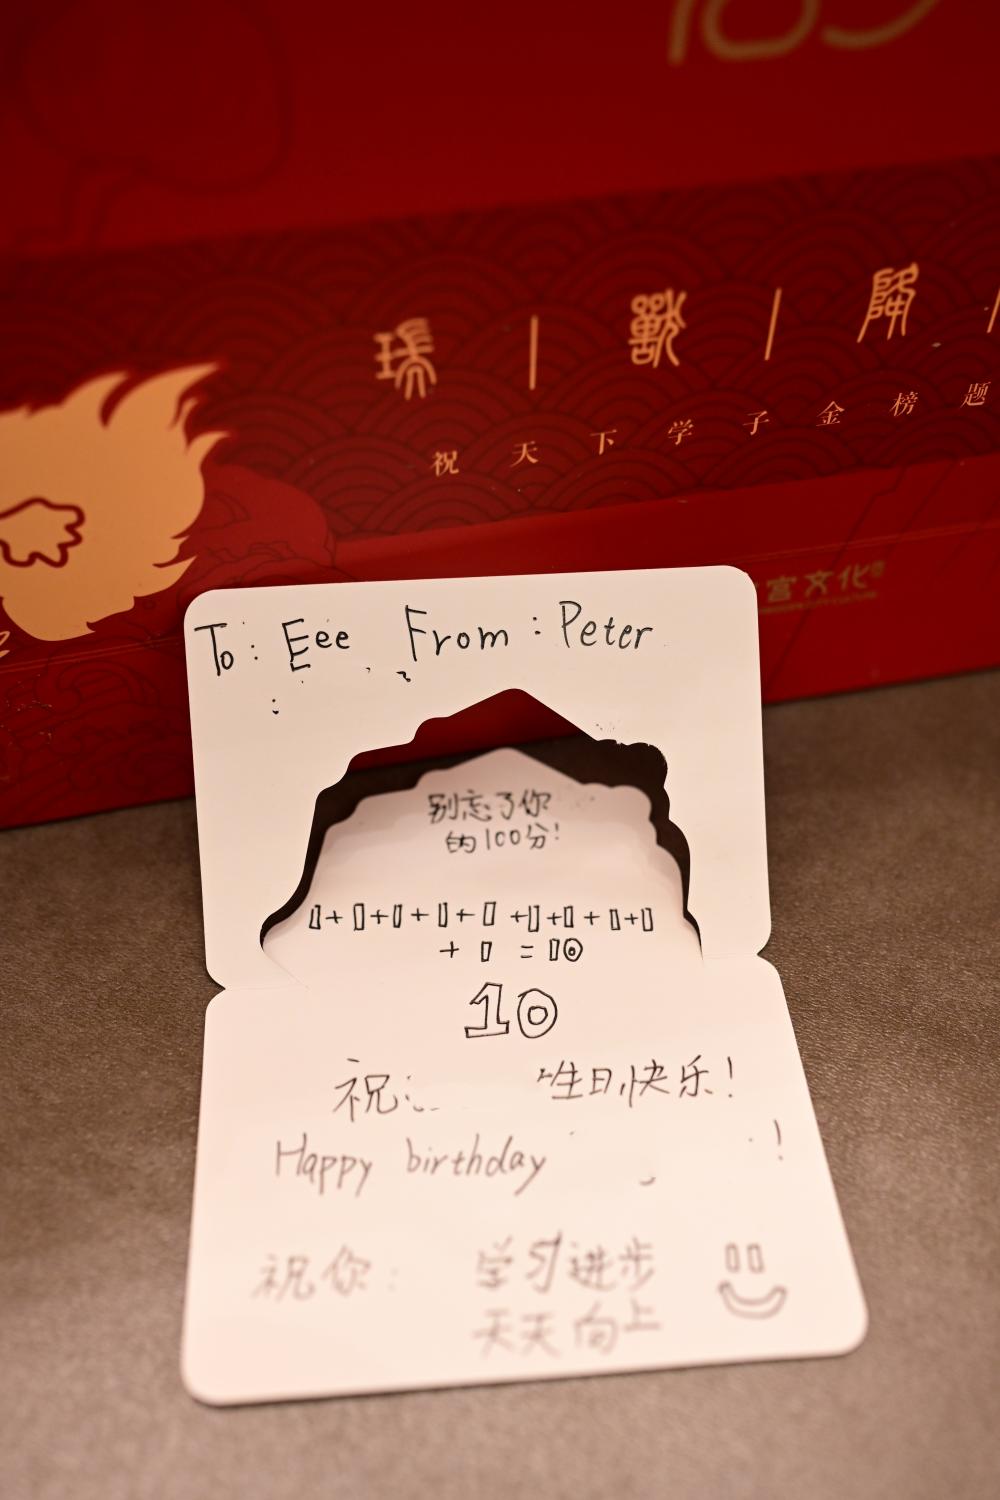 瑞 | 獸 | 降 |
祝天下学子金榜题
宫文化
To: Eee From: Peter
别忘了你
的100分!
1+1+1+1+1+1+1+1+1
+1=10
10
祝 生日快乐!
Happy birthday !
祝你: 学习进步
天天向上